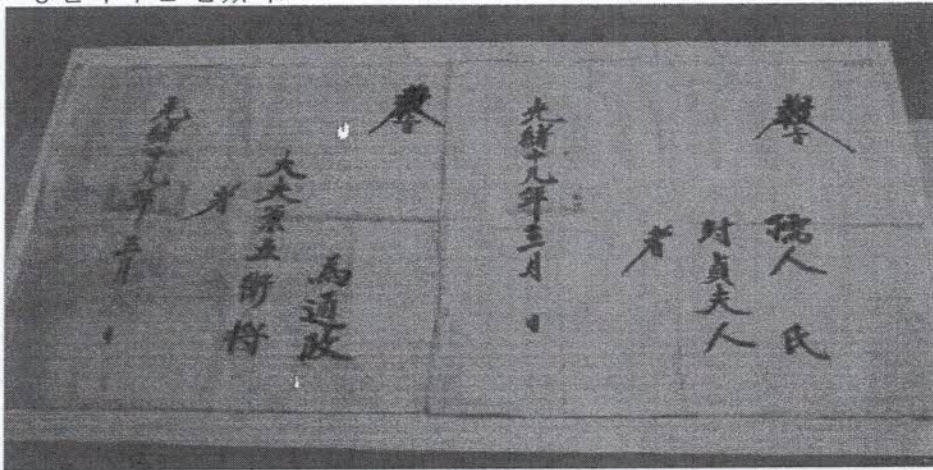 敎
孺人 氏
封貞夫人
者
光緖十九年三月 日
敎
爲通政
大夫 五衛將
者
光緖十九年 三月 日